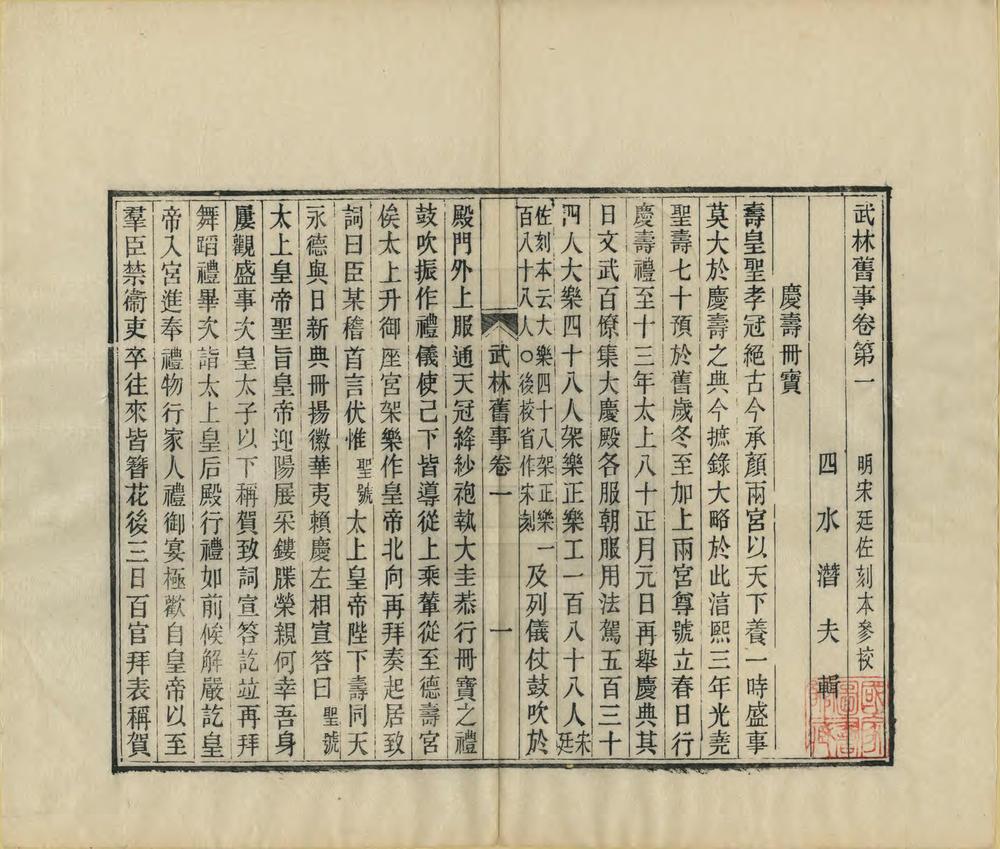 武林舊事卷第一　明宋廷佐刻本參校
四水潛夫輯
國家圖書館藏
慶壽冊寶
壽皇聖孝冠絕古今承顏兩宮以天下養一時盛事
莫大於慶壽之典今摭錄大略於此湻熙三年光堯
聖壽七十預於舊歲冬至加上兩宮尊號立春日行
慶壽禮至十三年太上八十正月元日再舉慶典其
日文武百僚集大慶殿各服朝服用法駕五百三十
四人大樂四十八人架樂正樂工一百八十八人宋廷
佐刻本云大樂四十八架正樂一百八十八人○後校省作宋刻及列儀仗鼓吹於
武林舊事卷一　一
殿門外上服通天冠絳紗袍執大圭恭行冊寶之禮
鼓吹振作禮儀使已下皆導從上乘輦從至德壽宮
俟太上升御座宮架樂作皇帝北向再拜奏起居致
詞曰臣某稽首言伏惟聖號太上皇帝陛下壽同天
永德與日新典冊揚徽華夷賴慶左相宣答曰聖號
太上皇帝聖旨皇帝迎陽展采鏤牒榮親何幸吾身
屢觀盛事次皇太子以下稱賀致詞宣答訖竝再拜
舞蹈禮畢次詣太上皇后殿行禮如前候解嚴訖皇
帝入宮進奉禮物行家人禮御宴極歡自皇帝以至
羣臣禁衞吏卒往來皆簪花後三日百官拜表稱賀